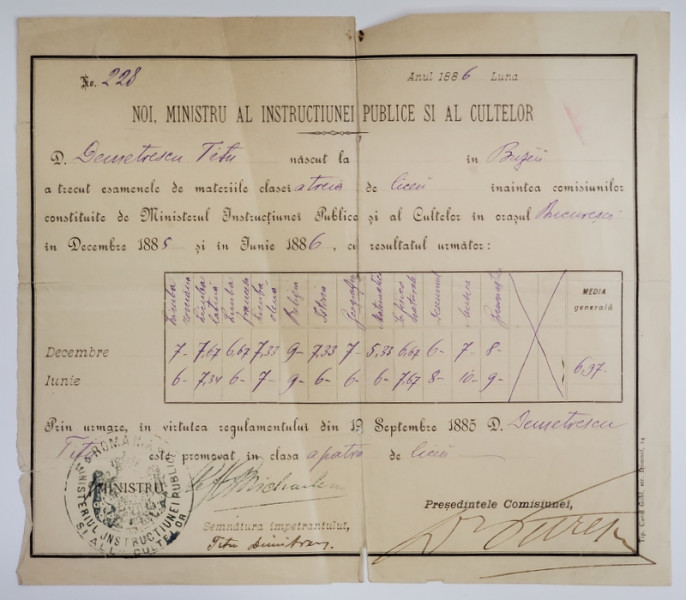 No. 228
Anul 1886 Luna
NOI, MINISTRU AL INSTRUCTIUNEI PUBLICE SI AL CULTELOR
D. Demetrescu Titu născut la în Buzĕu
a trecut esamenele de materiile clasei a treia de liceu înaintea comisiunilor
constituite de Ministerul Instrucțiunei Publice și al Cultelor în orașul Bucuresci
în Decembre 1885 și în Iunie 1886, cu resultatul următor:
Limba romana
Limba latină
Limba franceza
Limba elena
Religia
Istoria
Geografia
Matematica
Desemnul
Musica
Gimnastica
MEDIA generală
Decembre 7- 7,67 6,67 7,33 9- 7,33 7- 5,33 6,67 6- 7- 8-
Iunie 6- 7,34 6- 7- 9- 6- 6- 6- 7,67 8- 10- 9- 6,97-
Prin urmare, în virtutea regulamentului din 19 Septembre 1885 D. Demetrescu
Titu este promovat în clasa a patra de liceu
MINISTRU
ROMANIA
MINISTERIUL INSTRUCȚIUNEI PUBLICE SI AL CULTELOR
Semnătura impetrantului,
Titu
Președintele Comisiunei,